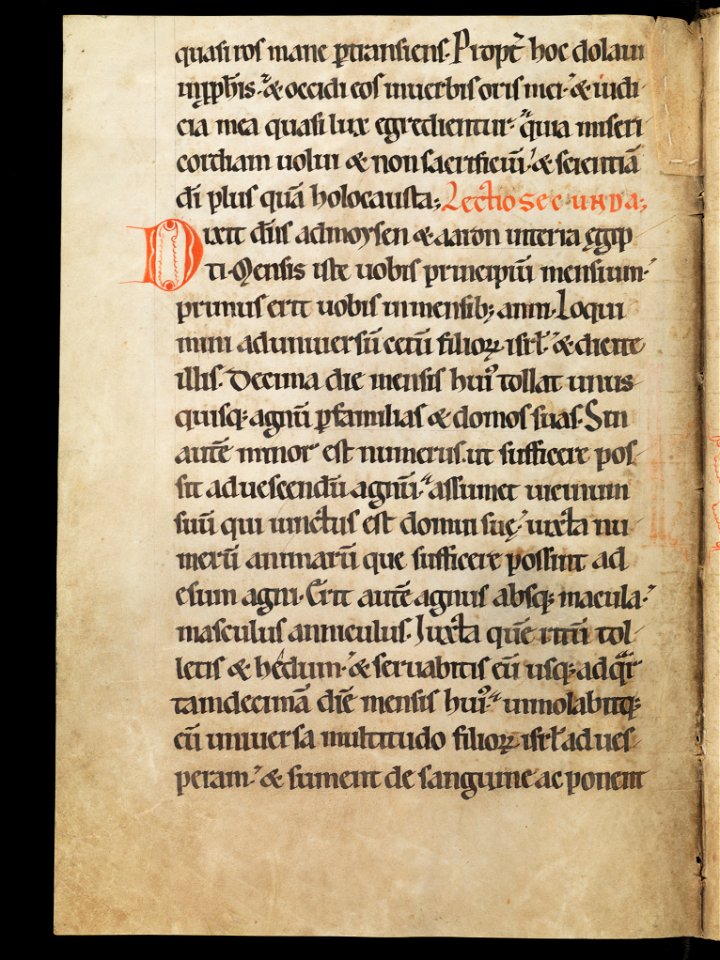 quasi ros mane ꝑtransiens. Propt̄ hoc dolaui
inꝓph̄is. & occidi eos inuerbis oris mei. & iudi
cia mea quasi lux egredientur. quia miseri
cordiam uolui & non sacrificiū. & scientiā
dī plus quā holocausta; Lectio secunda;
Dixit dn̄s admoysen & aaron interra ęgip
ti. Mensis iste uobis principiū mensium.
primus erit uobis inmensib; anni. Loqui
mini aduniuersū cetū filioꝝ isrl̄. & dicite
illis. Decima die mensis hui᷒ tollat unus
quisq; agnū ꝑfamilias & domos suas. Sin
autē minor est numerus. ut sufficere pos
sit aduescendū agnū. assumet uicinum
suū qui iunctus est domui suę. iuxta nu
merū animarū que sufficere possint ad
esum agni. Erit autē agnus absq; macula.
masculus anniculus. Iuxta quē ritū tol
letis & hędum. & seruabitis eū usq; ad qͣr
tamdecimā diē mensis hui᷒. immolabitq;
eū uniuersa multitudo filioꝝ isrl̄ ad ues
peram. & sument de sanguine ac ponent